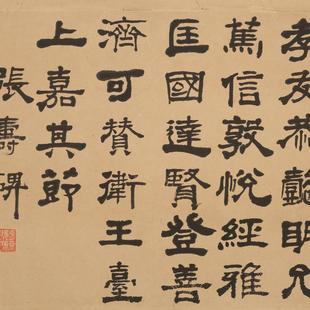 孝友恭懿明允
篤信敦悅經雅
匡國達賢登善
濟可贊衛王臺
上嘉其節
張壽碑